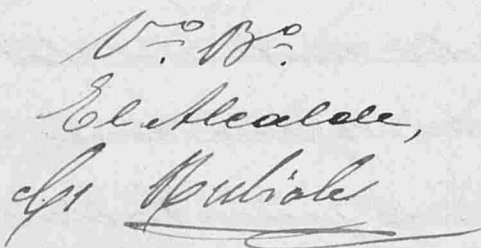 Vº Bº
El Alcalde,
Rubiale